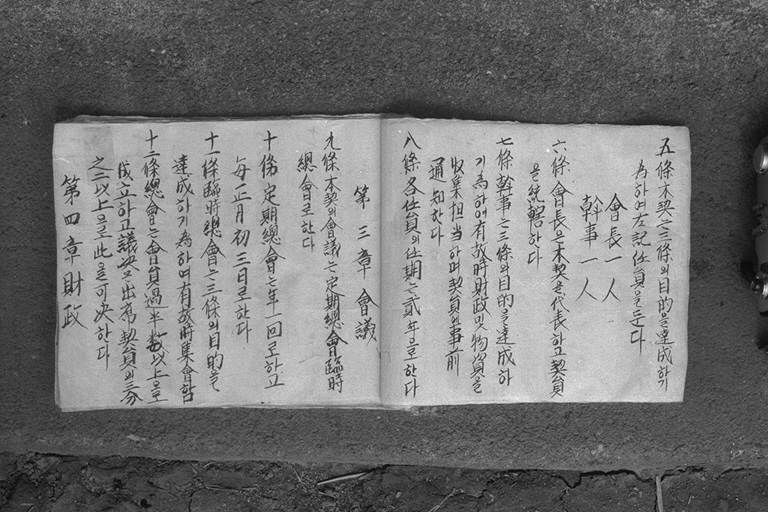 五條 本契는 三條의 目的을 達成하기
為하여 左記 任員을 둔다
會長 一人
幹事 一人
六條 會長은 本契을 代表하고 契員
을 統轄한다
七條 幹事는 三條의 目的을 達成하
기 為하여 有故時 財政 및 物資을
収集担当하며 契員의 事前
通知한다
八條 各任員의 任期는 貳年으로 한다
第三章 會議
九條 本契의 會議는 定期總會 臨時
總會로 한다
十條 定期總會는 年一回로 하고
每 正月 初三日로 한다
十一條 臨時總會는 三條의 目的을
達成하기 為하여 有故時 集會함
十二條 總會는 會員 過半數以上으로
成立하고 議決은 出席 契員의 三分
之二以上으로 此을 可決한다
第四章 財政